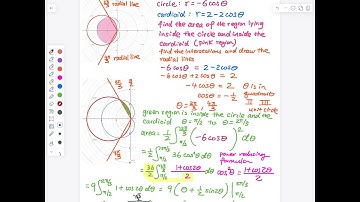 circle: r = -6cosθ
radial line
cardioid: r = 2-2cosθ
find the area of the region lying
inside the circle and inside the
cardioid (pink region)
find the intersections and draw the
radial line
radial lines
-6cosθ = 2-2cosθ
-6cosθ+2cosθ = 2
-4cosθ = 2 θ is in
cosθ = -1/2 quadrants
II III
θ = 2π/3, 4π/3 unit circle
green region is inside the circle and the
cardioid θ=π/2 to θ=2π/3
area = 1/2 ∫_{π/2}^{2π/3} (-6cosθ)² dθ
= 1/2 ∫_{π/2}^{2π/3} 36cos²θ dθ power reducing
formula
= 36/2 ∫_{π/2}^{2π/3} (1+cos2θ)/2 dθ cos²θ = (1+cos2θ)/2
= 9 ∫_{π/2}^{2π/3} 1+cos2θ dθ = 9(θ + 1/2 sin2θ) |_{π/2}^{2π/3}